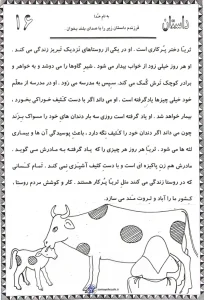 به نام خدا
داستان
۱۶
فرزندم داستان زیر را با صدای بلند بخوان.
ثریّا دختر پرکاری است . او در یکی از روستاهای نزدیک تبریز زندگی می کند .
او هر روز خیلی زود از خواب بیدار می شود . شیر گاوها را می دوشد و به خواهر و
برادر کوچک ترش کمک می کند. سپس به مدرسه می رود . او در مدرسه از معلّم
خود خیلی چیزها یاد گرفته است . او می داند اگر با دست کثیف خوراکی بخورد ،
بیمار می شود . او یاد گرفته است که هر روز صبح و شب دندان های خود را مسواک بزند
چون می داند اگر دندان خود را تمیز نگه ندارد ، باعث پوسیدگی آن ها و بیماری
لثه ها می شود . ثریّا هر روز هر چیزی را که یاد گرفته به مادرش می گوید .
مادرش هم زن پاکیزه ای است و با دست کثیف آشپزی نمی کند . تمام کسانی
که در روستا زندگی می کنند مثل ثریّا پرکار هستند . کار و کوشش مردم روستا ،
کشور ما را آباد و ثروت مند می سازد.